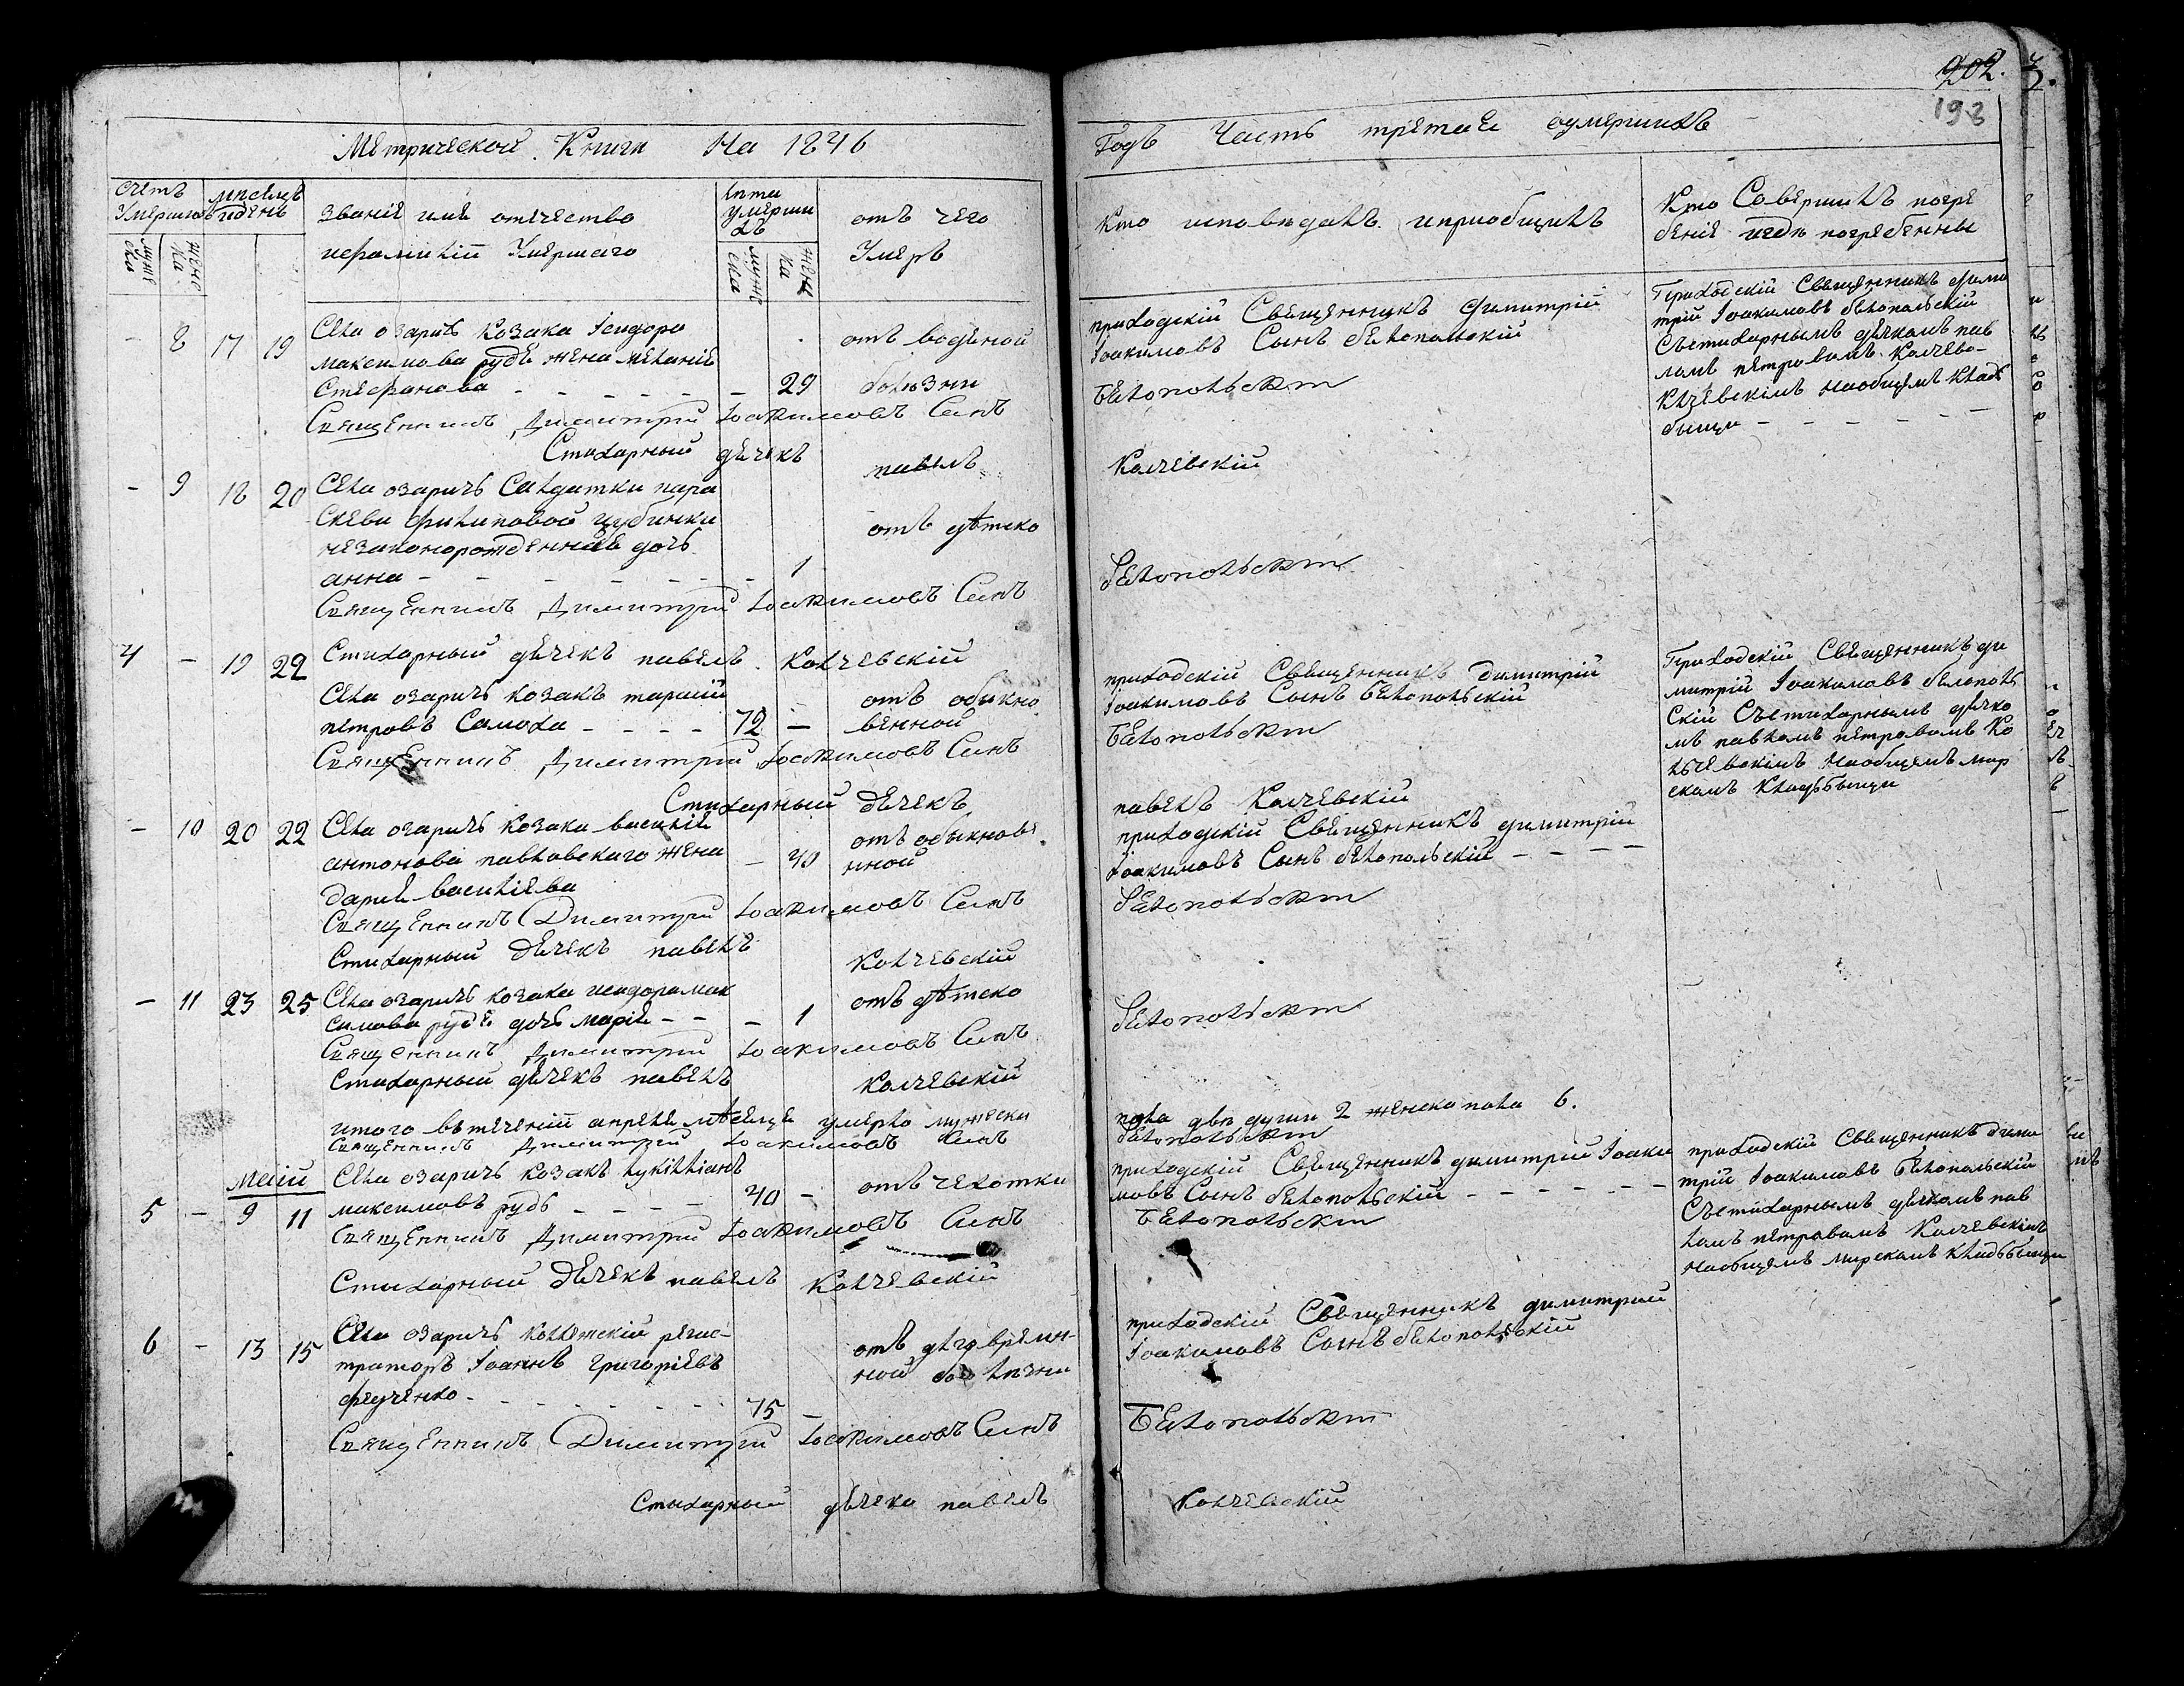 202.
193
Метрической Книги На 1846
Годъ Часть третая оумершихъ
счетъ Умершихъ
мѣсецъ и день
званіе имя отечество
и фамилїи Умершаго
лѣта умершихъ
отъ чего
Умеръ
Кто исповѣдалъ и приобщилъ
Кто Совершилъ погре
бенїе и гдѣ погребенны
муже
ска
женс
ка
муже
ска
женс
ка
- 8 17 19 Села озаричъ Козака Їсидора
максимова рудя жена меланія
Стефанова - - - - - 29
отъ водяной
болѣзни
приходскій Священникъ Димитрїй
Іоакимовъ Сынъ бѣлопольскій
Бѣлопольскїй
Приходскїй Священникъ дими
трїй Іоакимовъ бѣлопольскїй
Състихарнымъ дячкомъ пав
ломъ петровомъ Колчев-
скимъ наобщемъ клад
бищи - - - -
Священникъ Димитрїй Іоакимовъ Синъ
Стихарный дячекъ павелъ Колчевскїй
- 9 18 20 Села озаричъ Салдатки пара
скеви филиповой
незаконорожденная дочь
анна - - - - - - - 1
отъ дѣтско
Бѣлопольскїй
Священникъ Димитрїй Іоакимовъ Синъ
Стихарный дячекъ павелъ Колчевскїй
4 - 19 22
Села озаричъ козакъ
петровъ Самоха - - - - 72 -
отъ обыкно
венной
приходскїй Священникъ Димитрїй
Іоакимовъ Сынъ Бѣлопольскїй
Бѣлопольскїй
Приходскїй Священникъ ди
митрїй Іоакимовъ белополь
скїй Състихарнымъ дячко
мъ павломъ петровомъ Ко
лчевскимъ наобщемъ мир
скомъ кладбищи
Священникъ Димитрїй Іоакимовъ Синъ
Стихарный дячекъ павелъ Колчевскїй
- 10 20 22 Села озаричъ Козака василїя
антонова павловскаго жена - 40
дарья василїева
отъ обыкнове
нной
приходскїй Священникъ димитрїй
Іоакимовъ Сынъ бѣлопольскїй - - - -
Бѣлопольскїй
Священникъ Димитрїй Іоакимовъ Синъ
Стихарный дячекъ павелъ Колчевскїй
- 11 23 25 Села озаричъ козака исидора мак
симова рудя дочь марїя - - - 1
отъ дѣтско
Бѣлопольскїй
Священникъ Димитрїй Іоакимовъ Синъ
Стихарный дячекъ павелъ Колчевскїй
итого въ теченїи апреля мѣсяца умерло мужеска
пола двѣ души 2 женска пола 6.
Священникъ Димитрїй Іоакимовъ Синъ Бѣлопольскїй
маїй
5 - 9 11 Села озаричъ козакъ лукиллїанъ
максимовъ рудь - - - - 40 -
отъ чехотки
приходскїй Священникъ димитрїй Іоаки
мовъ Сынъ бѣлопольскїй - - - - - -
Бѣлопольскїй
приходскїй Священникъ дими
трїй Іоакимовъ Бѣлопольскїй
Състихарнымъ дячкомъ пав
ломъ петровомъ Колчевскимъ
наобщемъ мирскомъ кладьбищи
Священникъ Димитрїй Іоакимовъ Синъ
Стихарный дячекъ павелъ Колчевскїй
6 - 13 15 Села озаричъ коллежскїй регис-
траторъ Іоаннъ григорїевъ
федченко - - - - - - - 75 -
отъ долговремен-
ной болѣзни
приходскїй Священникъ димитрїй
Іоакимовъ Сынъ бѣлопольскїй
Бѣлопольскїй
Священникъ Димитрїй Іоакимовъ Синъ
Стихарный дячекъ павелъ Колчевскїй